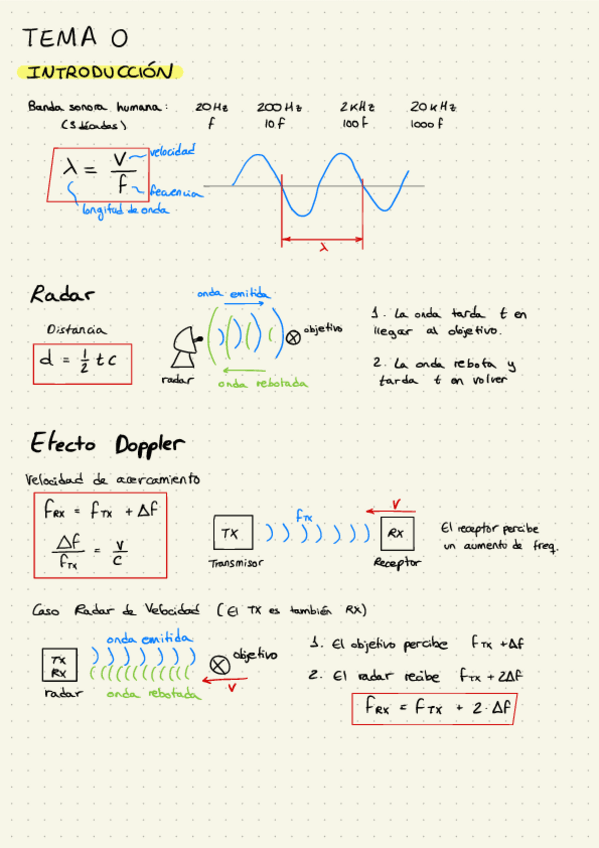 TEMA 0
INTRODUCCIÓN
Banda sonora humana: 20Hz 200Hz 2kHz 20kHz
(3 décadas) f 10f 100f 1000f
λ = v/f
velocidad
frecuencia
longitud de onda
λ
Radar
Distancia
d = 1/2 t c
onda emitida
objetivo
radar
onda rebotada
1. La onda tarda t en
llegar al objetivo.
2. La onda rebota y
tarda t en volver
Efecto Doppler
Velocidad de acercamiento
fRX = fTX + Δf
Δf/fTX = v/c
TX
Transmisor
fTX
v
RX
Receptor
El receptor percibe
un aumento de freq.
Caso Radar de Velocidad (El TX es también RX)
onda emitida
TX
RX
radar
onda rebotada
objetivo
v
1. El objetivo percibe fTX + Δf
2. El radar recibe fTX + 2Δf
fRX = fTX + 2·Δf